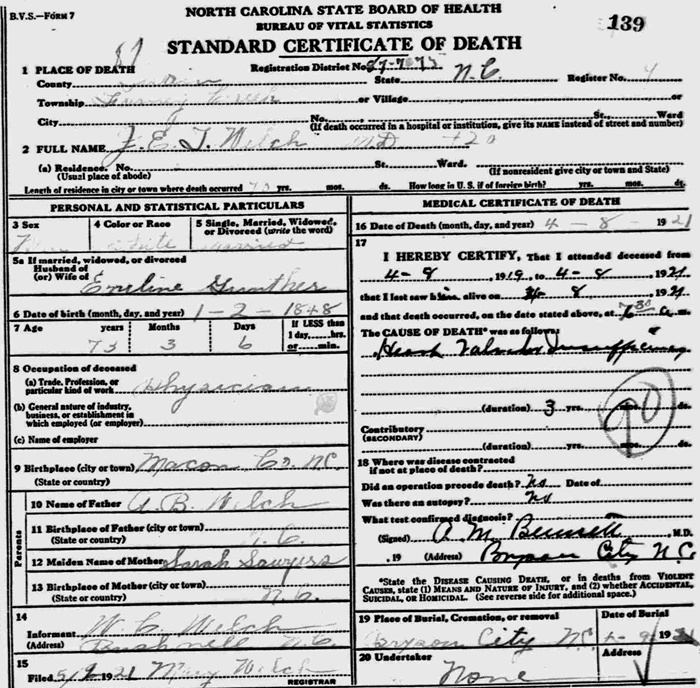 B.V.S.—FORM 7
NORTH CAROLINA STATE BOARD OF HEALTH
BUREAU OF VITAL STATISTICS
STANDARD CERTIFICATE OF DEATH
139
1 PLACE OF DEATH
Registration District No.
County
State N.C.
Register No. 4
Township
or Village
City
No.
St.,
Ward
(If death occurred in a hospital or institution, give its NAME instead of street and number)
2 FULL NAME J. E. T. Welch MD
(a) Residence. No.
St.
Ward.
(Usual place of abode)
(If nonresident give city or town and State)
Length of residence in city or town where death occurred yrs. mos. ds. How long in U. S. if of foreign birth? yrs. mos. ds.
PERSONAL AND STATISTICAL PARTICULARS
3 Sex
4 Color or Race
White
5 Single, Married, Widowed, or Divorced (write the word)
Married
5a If married, widowed, or divorced
Husband of
(or) Wife of
Emeline Gunther
6 Date of birth (month, day, and year) 1-2-1848
7 Age
years
Months
Days
If LESS than
1 day, hrs.
or min.
73 3 6
8 Occupation of deceased
(a) Trade, Profession, or
particular kind of work Physician
(b) General nature of industry,
business, or establishment in
which employed (or employer)
(c) Name of employer
9 Birthplace (city or town) Macon Co. N.C.
(State or country)
Parents
10 Name of Father A. B. Welch
11 Birthplace of Father (city or town)
(State or country) N. C.
12 Maiden Name of Mother Sarah Sawyers
13 Birthplace of Mother (city or town)
(State or country) N. C.
14
Informant W. C. Welch
(Address) Bushnell N. C.
15
Filed 1921 Mary Welch
REGISTRAR
MEDICAL CERTIFICATE OF DEATH
16 Date of Death (month, day, and year) 4-8-1921
17
I HEREBY CERTIFY, That I attended deceased from
4-8 1919, to 4-8 1921
that I last saw him alive on 8, 1921
and that death occurred, on the date stated above, at m.
The CAUSE OF DEATH* was as follows:
Heart Valvular Insufficiency
(duration) 3 yrs. mos. ds.
90
Contributory
(SECONDARY)
(duration) yrs. mos. ds.
18 Where was disease contracted
if not at place of death?
Did an operation precede death? No Date of
Was there an autopsy? No
What test confirmed diagnosis?
(Signed) A. M. Bennett, M.D.
, 19 (Address) Bryson City N.C.
*State the DISEASE CAUSING DEATH, or in deaths from VIOLENT
CAUSES, state (1) MEANS AND NATURE OF INJURY, and (2) whether ACCIDENTAL,
SUICIDAL, OR HOMICIDAL. (See reverse side for additional space.)
19 Place of Burial, Cremation, or removal
Date of Burial
Bryson City N.C. 4-9-1921
20 Undertaker
Address
None